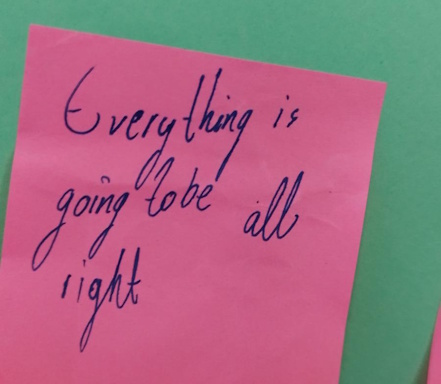 Everything is
going to be all
right